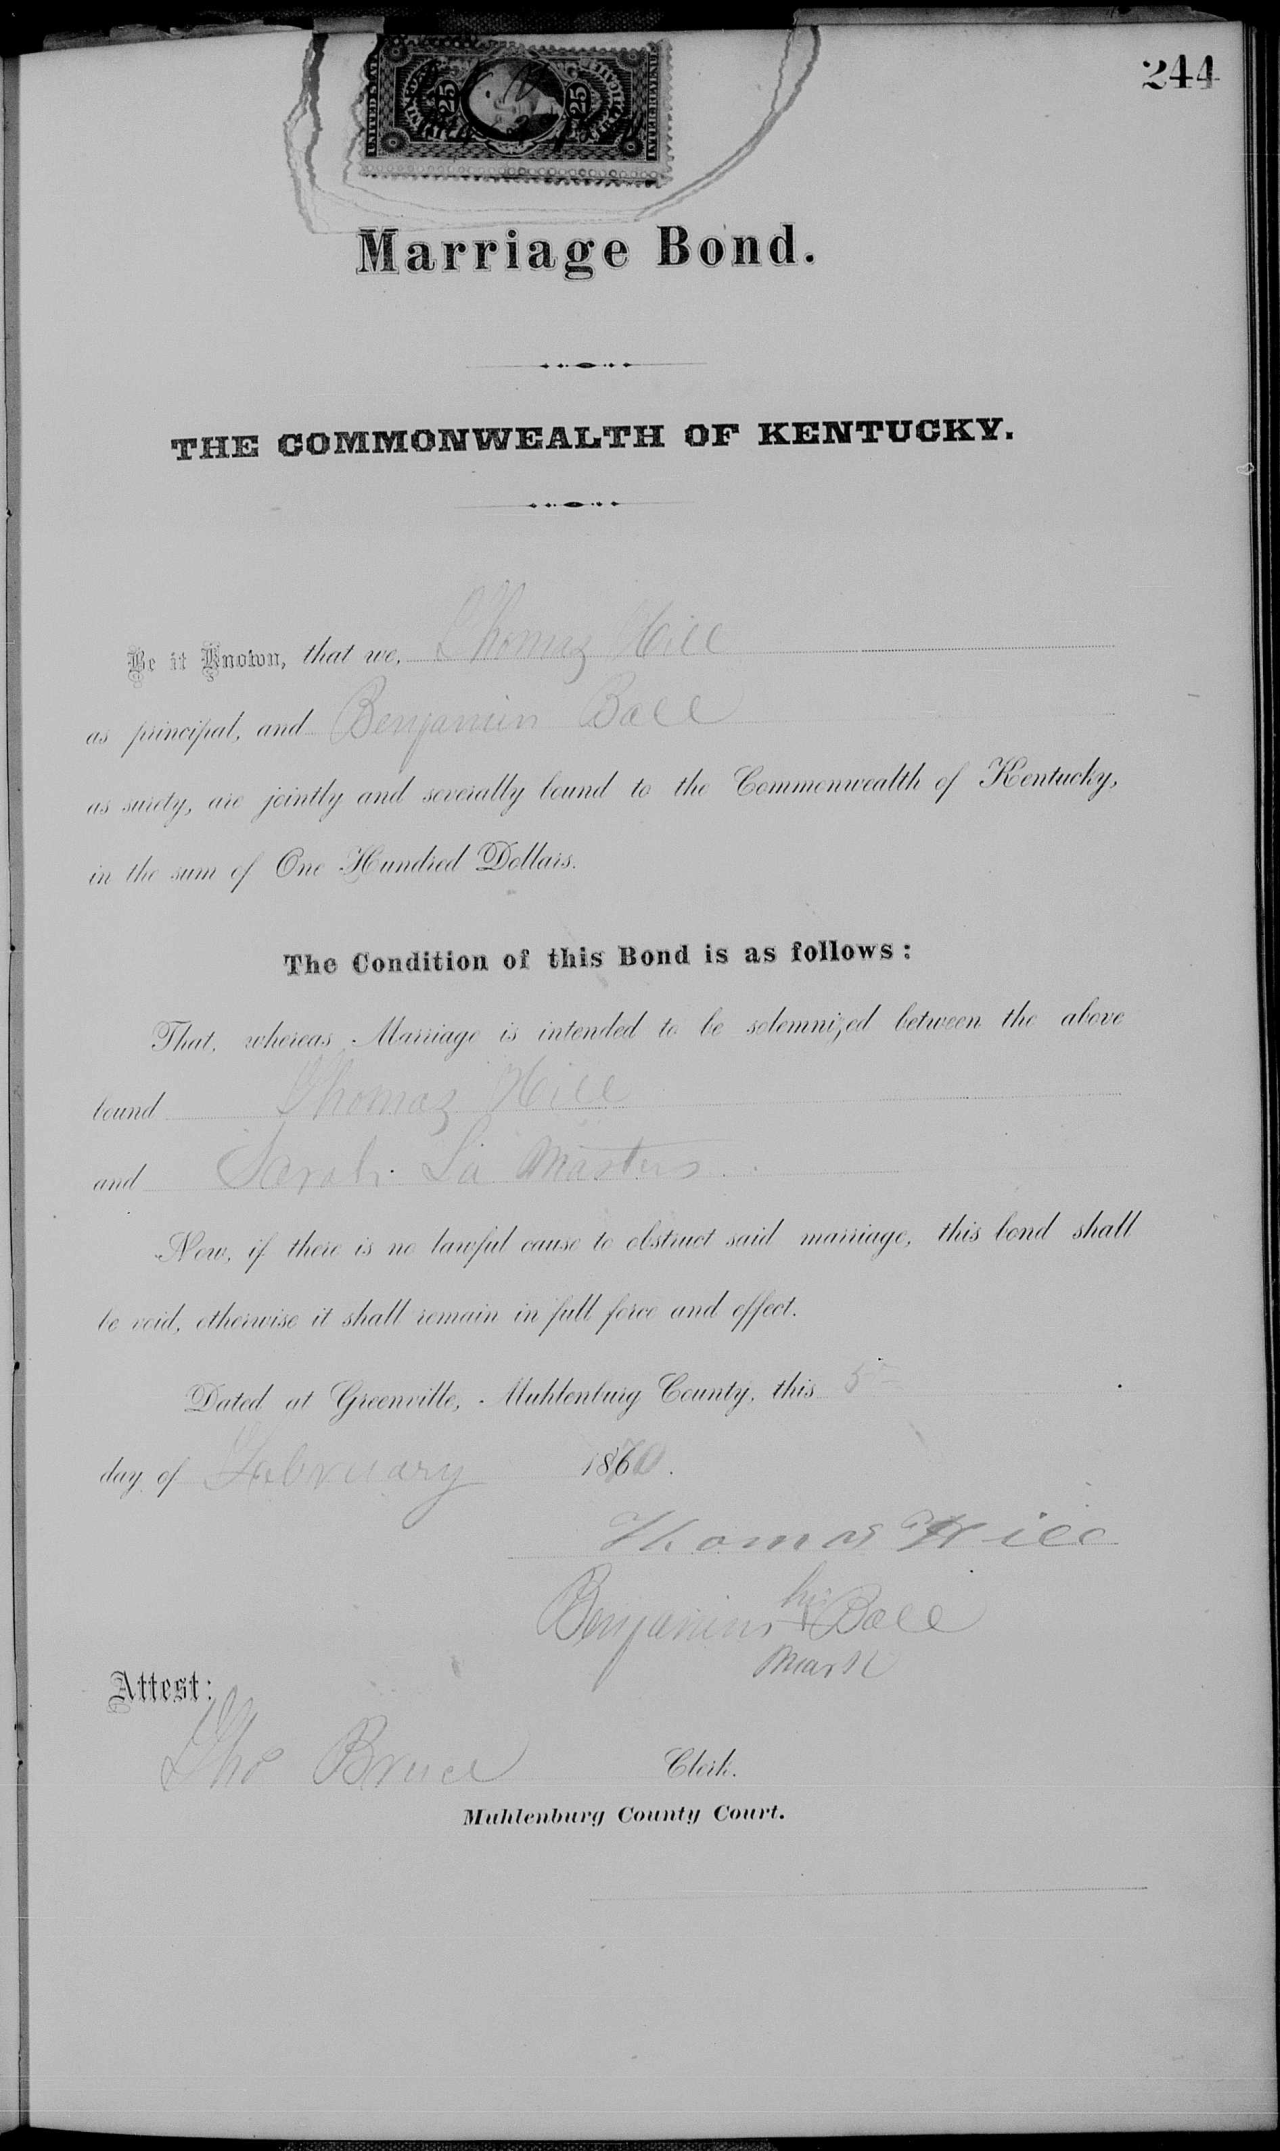 244
UNITED STATES
INTER. REVENUE
25 25
Marriage Bond.
THE COMMONWEALTH OF KENTUCKY.
Be it Known, that we, Thomas Hill
as principal, and Benjamin Ball
as surety, are jointly and severally bound to the Commonwealth of Kentucky,
in the sum of One Hundred Dollars.
The Condition of this Bond is as follows:
That, whereas Marriage is intended to be solemnized between the above
bound Thomas Hill
and Sarah La Masters
Now, if there is no lawful cause to obstruct said marriage, this bond shall
be void, otherwise it shall remain in full force and effect.
Dated at Greenville, Muhlenburg County, this 5
day of February 1870.
Thomas Hill
his
Benjamin X Ball
mark
Attest:
Tho Bruce Clerk.
Muhlenburg County Court.